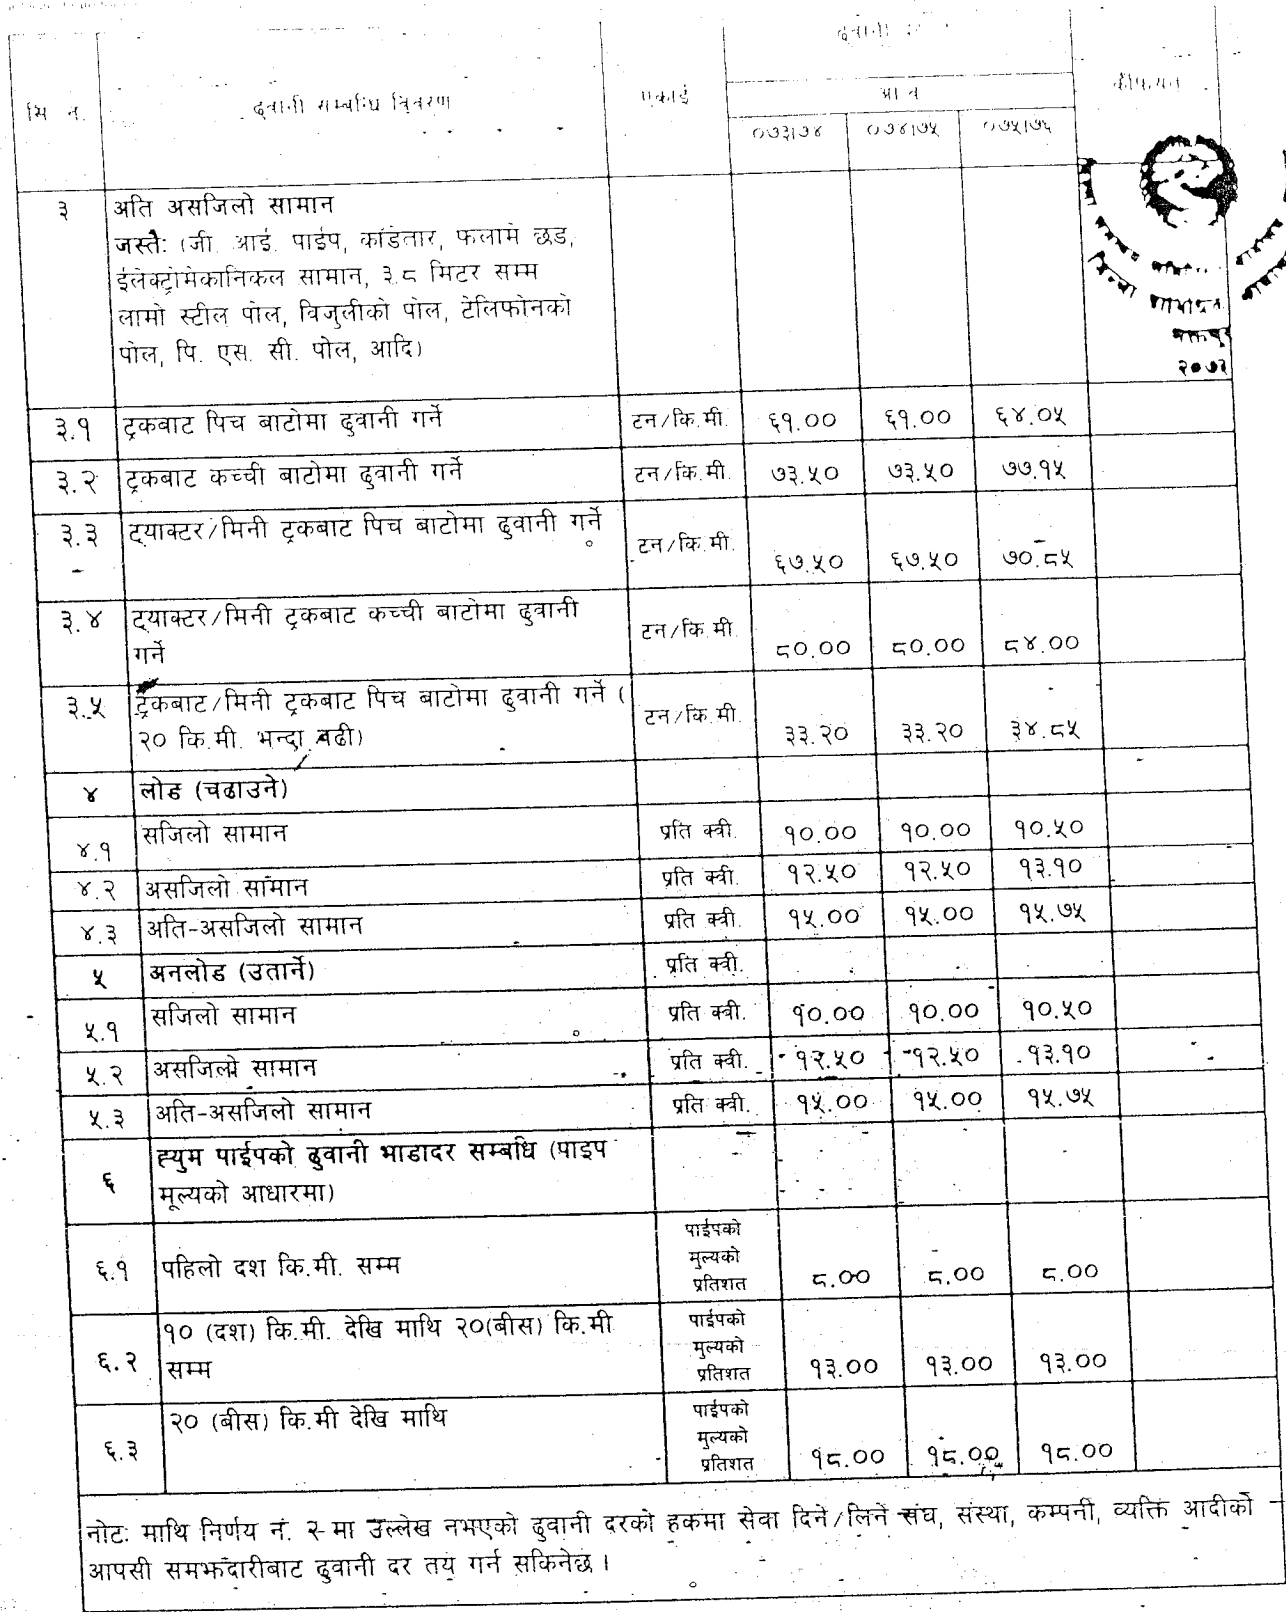 ढुवानी दर
सि. न. ढुवानी सम्बन्धि विवरण एकाई आ व कैफियत
०७३।७४ ०७४।७५ ०७५।७६
३ अति असजिलो सामान
जस्तै: (जी. आई. पाईप, काँडेतार, फलामे छड,
ईलेक्ट्रोमेकानिकल सामान, ३.८ मिटर सम्म
लामो स्टील पोल, विजुलीको पोल, टेलिफोनको
पोल, पि. एस. सी. पोल, आदि)
भक्तपुर
२०७३
३.१ ट्रकबाट पिच बाटोमा ढुवानी गर्ने टन/कि.मी. ६१.०० ६१.०० ६४.०५
३.२ ट्रकबाट कच्ची बाटोमा ढुवानी गर्ने टन/कि.मी. ७३.५० ७३.५० ७७.१५
३.३ ट्याक्टर/मिनी ट्रकबाट पिच बाटोमा ढुवानी गर्ने टन/कि.मी. ६७.५० ६७.५० ७०.८५
३.४ ट्याक्टर/मिनी ट्रकबाट कच्ची बाटोमा ढुवानी
गर्ने टन/कि.मी. ८०.०० ८०.०० ८४.००
३.५ ट्रकबाट/मिनी ट्रकबाट पिच बाटोमा ढुवानी गर्ने (
२० कि.मी. भन्दा बढी) टन/कि.मी. ३३.२० ३३.२० ३४.८५
४ लोड (चढाउने)
४.१ सजिलो सामान प्रति क्वी. १०.०० १०.०० १०.५०
४.२ असजिलो सामान प्रति क्वी. १२.५० १२.५० १३.१०
४.३ अति-असजिलो सामान प्रति क्वी. १५.०० १५.०० १५.७५
५ अनलोड (उतार्ने) प्रति क्वी.
५.१ सजिलो सामान प्रति क्वी. १०.०० १०.०० १०.५०
५.२ असजिलो सामान प्रति क्वी. १२.५० १२.५० १३.१०
५.३ अति-असजिलो सामान प्रति क्वी. १५.०० १५.०० १५.७५
६ ह्युम पाईपको ढुवानी भाडादर सम्बधि (पाइप
मूल्यको आधारमा)
६.१ पहिलो दश कि.मी. सम्म पाईपको
मुल्यको
प्रतिशत ८.०० ८.०० ८.००
६.२ १० (दश) कि.मी. देखि माथि २०(बीस) कि.मी
सम्म पाईपको
मुल्यको
प्रतिशत १३.०० १३.०० १३.००
६.३ २० (बीस) कि.मी देखि माथि पाईपको
मुल्यको
प्रतिशत १८.०० १८.०० १८.००
नोट: माथि निर्णय नं. २ मा उल्लेख नभएको ढुवानी दरको हकमा सेवा दिने/लिने संघ, संस्था, कम्पनी, व्यक्ति आदीको
आपसी समझदारीबाट ढुवानी दर तय गर्न सकिनेछ ।